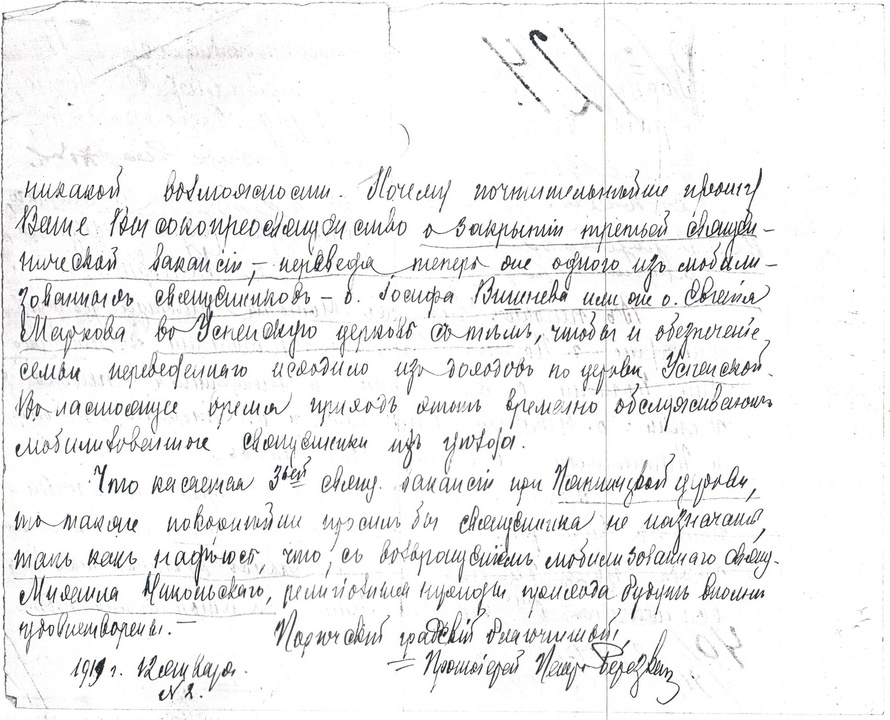 124.
никакой возможности. Почему почтительнѣйше прошу
Ваше Высокопреосвященство о закрытіи третьей священ-
нической вакансіи, переведя теперь же одного изъ мобили-
зованныхъ священниковъ – о. Іосифа Вишнева или же о. Евгенія
Маркова во Успенскую церковь съ тѣмъ, чтобы и обезпеченіе
семьи переведеннаго исходило изъ доходовъ по церкви Успенской.
Въ настоящее время приходъ этотъ временно обслуживаютъ
мобилизованные священники изъ
Что касается 3ьей свящ. вакансіи при церкви,
то также покорнѣйше просилъ бы священника не назначать,
такъ какъ надѣюсь, что, съ возвращеніемъ мобилизованнаго свящ.
Михаила Никольскаго, религіозныя нужды прихода будутъ вполнѣ
удовлетворены. –
градскій благочинный,
Протоіерей Петръ
1919 г. 12 января.
№ 2.